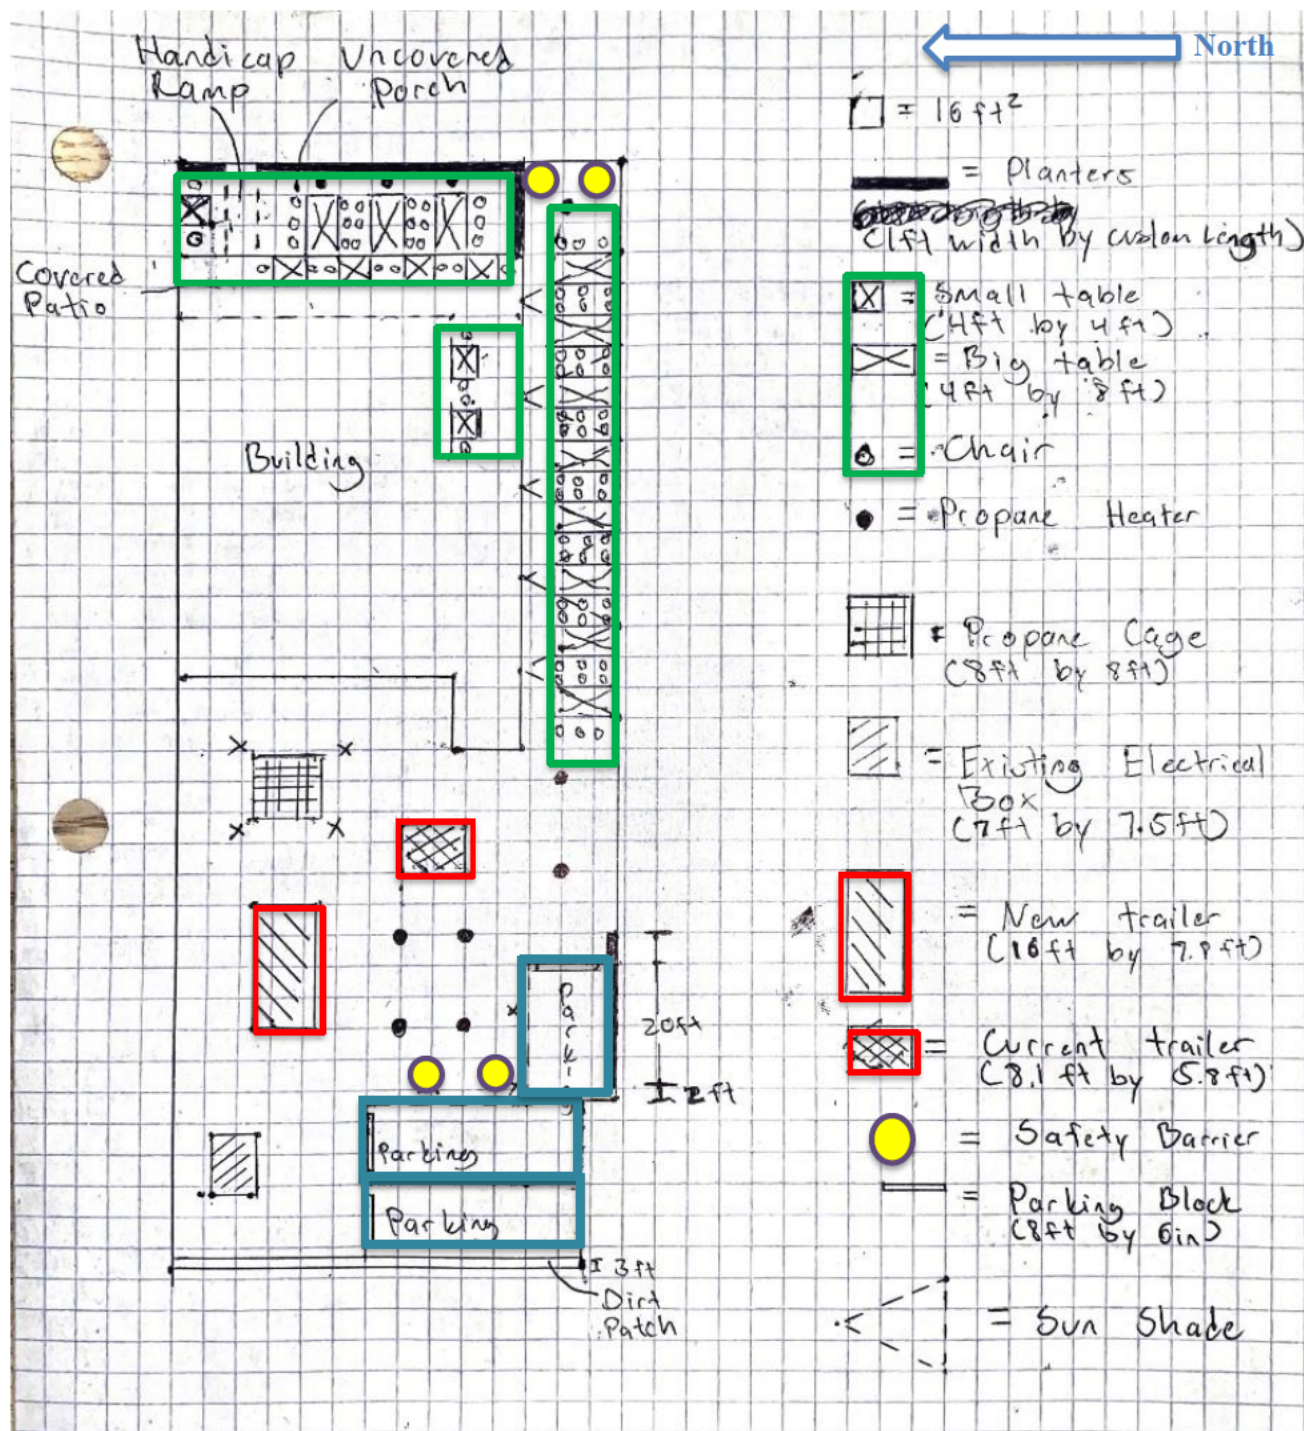 North
Handicap Ramp
Uncovered Porch
Covered Patio
Building
Parking
20ft
2ft
Parking
Parking
3ft
Dirt Patch
= 16 ft²
= Planters
(1ft width by custom length)
= Small table
(4ft by 4ft)
= Big table
(4ft by 8ft)
= Chair
= Propane Heater
= Propane Cage
(8ft by 8ft)
= Existing Electrical
Box
(7ft by 7.5ft)
= New trailer
(16ft by 7.9ft)
= Current trailer
(8.1 ft by 5.8ft)
= Safety Barrier
= Parking Block
(8ft by 6in)
= Sun Shade